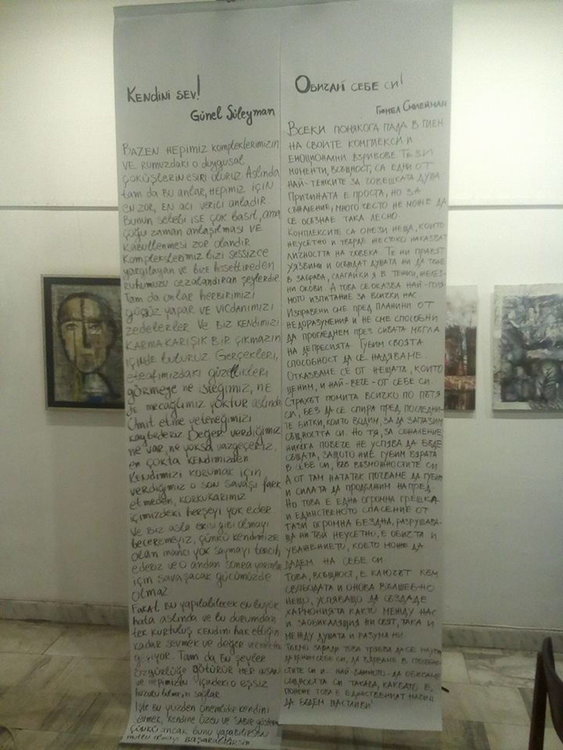 KENDİNİ SEV!
Günel Süleyman
BAZEN HEPİMİZ komplekslerimizin
VE RUHUMUZDAKİ o duygusal
çöküşlerin ESİRİ oluruz. Aslında
tam da bu anlar, HEPİMİZ İÇİN
EN ZOR, EN ACI VERİCİ anladır
Bunun sebebi ise çok basit, ama
çoğu zaman anlaşılması VE
kabullenmesi zor olandır
Komplekslerimiz bizi sessizce
yargılayan ve bize hissettirmeden
ruhumuzu cezalandıran şeylerdir
Tam da onlar herbirimizi
güçsüz yapar ve vicdanımızı
zedelerler. Ve biz kendimizi
KARMAKARIŞIK BİR ÇIKMAZIN
İÇİNDE buluruz. Gerçekleri,
etrafımızdaki güzellikleri
görmeye ne isteğimiz, ne
de mecalimiz yoktur aslında
Ümit etme yeteneğimizi
kaybederiz. Değer verdiğimiz
ne var, ne yoksa vazgeçeriz,
en çokta kendimizden
Kendimizi korumak için
verdiğimiz o son savaşı fark
etmeden, korkularımız
içimizdeki herşeyi yok eder
ve biz asla eskisi gibi olmayı
beceremeyiz, çünkü kendimize
olan inancı yok saymayı tercih
ederiz ve o andan sonra yarınlar
için savaşacak gücümüzde
olmaz
Fakat bu yapılabilecek en büyük
hata aslında ve bu durumdan
tek kurtuluş kendini hak ettiğin
kadar sevmek ve değer vermekten
geçiyor. Tam da bu şeyler
özgürlüğe götürür HER insanı
ve hepimizin içindeki o eşsiz
huzuru bulmasını sağlar
İşte bu yüzden önemlidir kendini
sevmek, kendine özen ve sabır göstermek
çünkü ancak bunu yapabilirsen
ОБИЧАЙ СЕБЕ СИ!
Гюнел Сюлейман
ВСЕКИ ПОНЯКОГА ПАДА В ПЛЕН
НА СВОИТЕ КОМПЛЕКСИ И
ЕМОЦИОНАЛНИ ВЗРИВОВЕ. ТЕЗИ
МОМЕНТИ, ВСЪЩНОСТ, СА ЕДНИ ОТ
НАЙ-ТЕЖКИТЕ ЗА ЧОВЕШКАТА ДУША
ПРИЧИНАТА Е ПРОСТА, НО ЗА
СЪЖАЛЕНИЕ, МНОГО ЧЕСТО НЕ МОЖЕ ДА
СЕ ОСЪЗНАЕ ТАКА ЛЕСНО.
КОМПЛЕКСИТЕ СА ОНЕЗИ НЕЩА, КОИТО
НЕУСЕТНО И ТВЪРДЕ ЖЕСТОКО НАКАЗВАТ
ЛИЧНОСТТА НА ЧОВЕКА. ТЕ НИ ПРАВЯТ
УЯЗВИМИ И ОСЪЖДАТ ДУШАТА НИ ДА ТЪНЕ
В ЗАБРАВА, СЛАГАЙКИ Я В ТЕЖКИ, ЖЕЛЕЗ-
НИ ОКОВИ. А ТОВА СЕ ОКАЗВА НАЙ-ГОЛЯ-
МОТО ИЗПИТАНИЕ ЗА ВСИЧКИ НАС.
ИЗПРАВЕНИ СМЕ ПРЕД ПЛАНИНИ ОТ
НЕДОРАЗУМЕНИЯ И НЕ СМЕ СПОСОБНИ
ДА ПРОГЛЕДНЕМ ПРЕЗ СИВАТА МЪГЛА
НА ДЕПРЕСИЯТА. ГУБИМ СВОЯТА
СПОСОБНОСТ ДА СЕ НАДЯВАМЕ.
ОТКАЗВАМЕ СЕ ОТ НЕЩАТА, КОИТО
ЦЕНИМ, И НАЙ-ВЕЧЕ - ОТ СЕБЕ СИ.
СТРАХЪТ ПОМИТА ВСИЧКО ПО ПЪТЯ
СИ, БЕЗ ДА СЕ СПИРА ПРЕД ПОСЛЕДНИ-
ТЕ БИТКИ, КОИТО ВОДИМ, ЗА ДА ЗАПАЗИМ
СЪЩНОСТТА СИ. НО ТЯ, ЗА СЪЖАЛЕНИЕ
НИКОГА ПОВЕЧЕ НЕ УСПЯВА ДА БЪДЕ
СЪЩАТА, ЗАЩОТО НИЕ ГУБИМ ВЯРАТА
В СЕБЕ СИ, ВЪВ ВЪЗМОЖНОСТИТЕ СИ
А ОТ ТАМ НАТАТЪК ПОЧВАМЕ ДА ГУБИМ
И СИЛАТА ДА ПРОДЪЛЖИМ НАПРЕД.
НО ТОВА Е ЕДНА ОГРОМНА ГРЕШКА
И ЕДИНСТВЕНОТО СПАСЕНИЕ ОТ
ТАЗИ ОГРОМНА БЕЗДНА, РАЗРУШАВА-
ЩА НИ ТАКА НЕУСЕТНО, Е ОБИЧТА И
УВАЖЕНИЕТО, КОЕТО МОЖЕ ДА
ДАДЕМ НА СЕБЕ СИ.
ТОВА, ВСЪЩНОСТ, Е КЛЮЧЪТ КЪМ
СВОБОДАТА И ОНОВА ВЪЛШЕБНО
НЕЩО, УСПЯВАЩО ДА СЪЗДАДЕ
ХАРМОНИЯТА КАКТО МЕЖДУ НАС
И ЗАОБИКАЛЯЩИЯ НИ СВЯТ, ТАКА И
МЕЖДУ ДУШАТА И РАЗУМА НИ
ТОЧНО ЗАРАДИ ТОВА ТРЯБВА ДА СЕ НАУЧИМ
ДА ЦЕНИМ СЕБЕ СИ, ДА ВЯРВАМЕ В СПОСОБНО-
СТИТЕ СИ И НАЙ-ВАЖНОТО - ДА ОБИЧАМЕ
СЪЩНОСТТА СИ ТАКАВА, КАКВАТО Е,
ПОНЕЖЕ ТОВА Е ЕДИНСТВЕНИЯТ НАЧИН
ДА БЪДЕМ ЩАСТЛИВИ